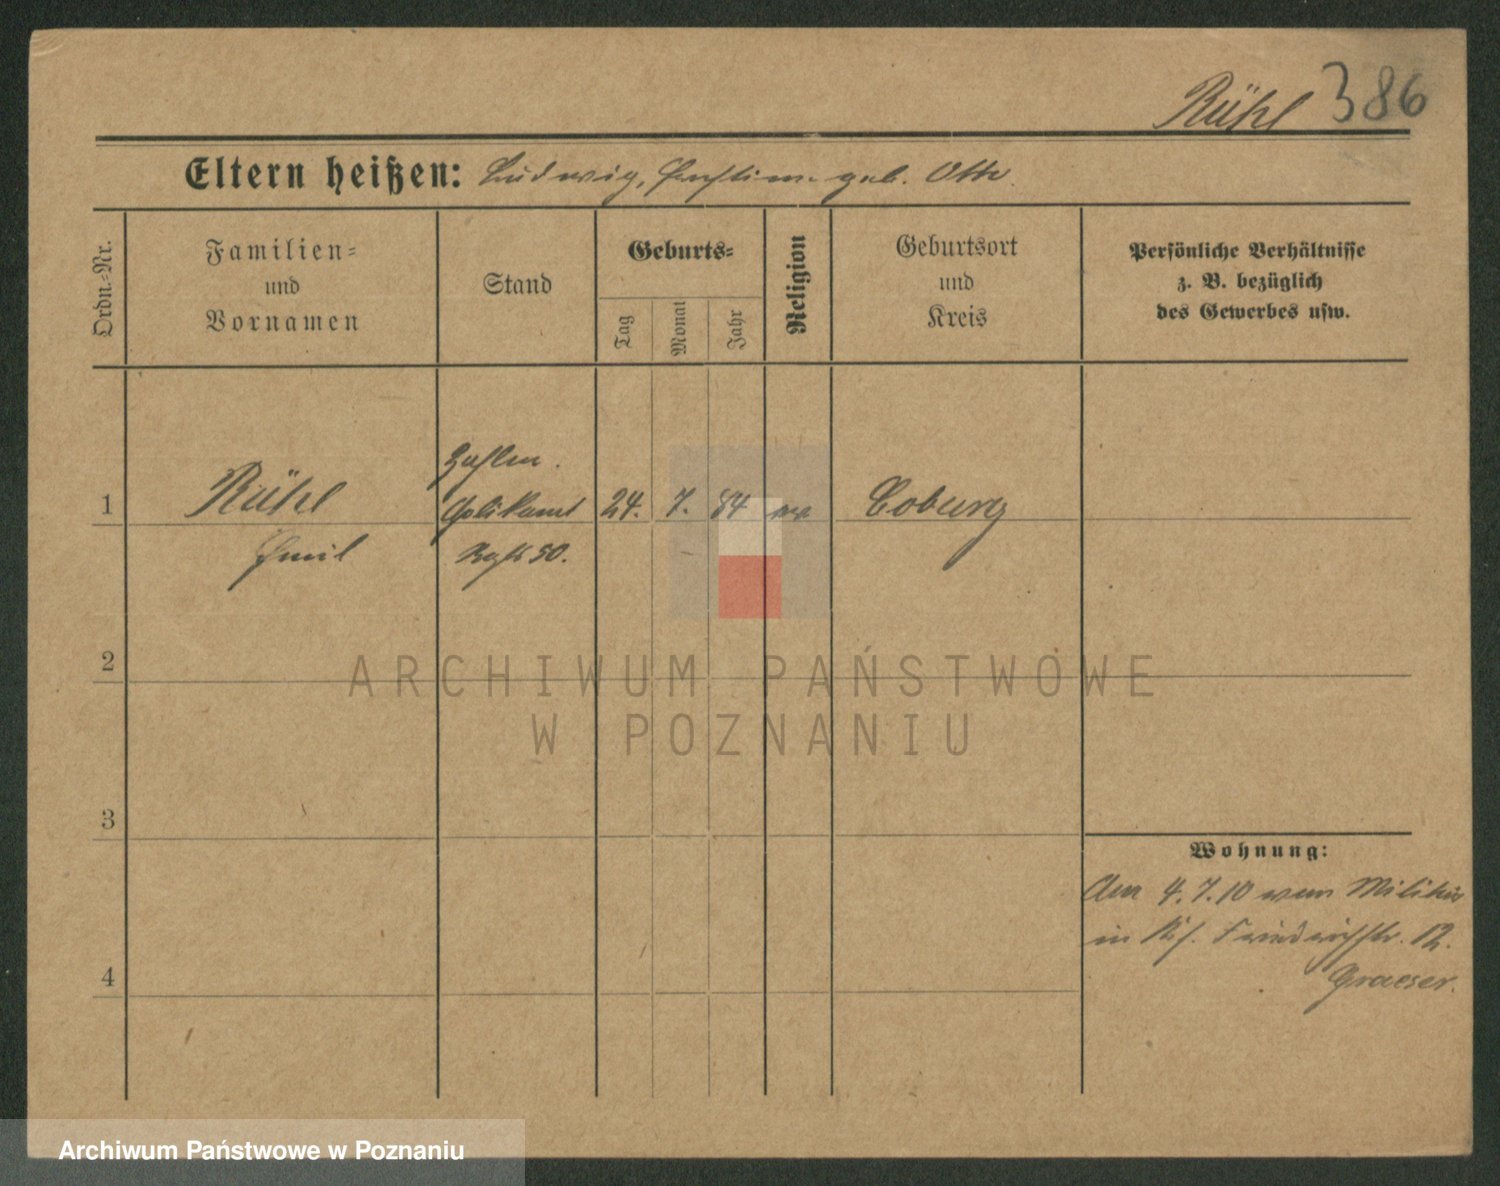 Rühl 386
Eltern heißen: Ludwig, geb. Otto
Ordn.-Nr.
Familien-
und
Vornamen
Stand
Geburts-
Tag
Monat
Jahr
Religion
Geburtsort
und
Kreis
Persönliche Verhältnisse
z. B. bezüglich
des Gewerbes usw.
1 Rühl 24. 7. 84 ev Coburg
Emil Rgts 50.
2
3
4
Wohnung:
Am 4. 7. 10 vom Militär
in Friedrichstr. 12.
Graeser.
ARCHIWUM PAŃSTWOWE
W POZNANIU
Archiwum Państwowe w Poznaniu